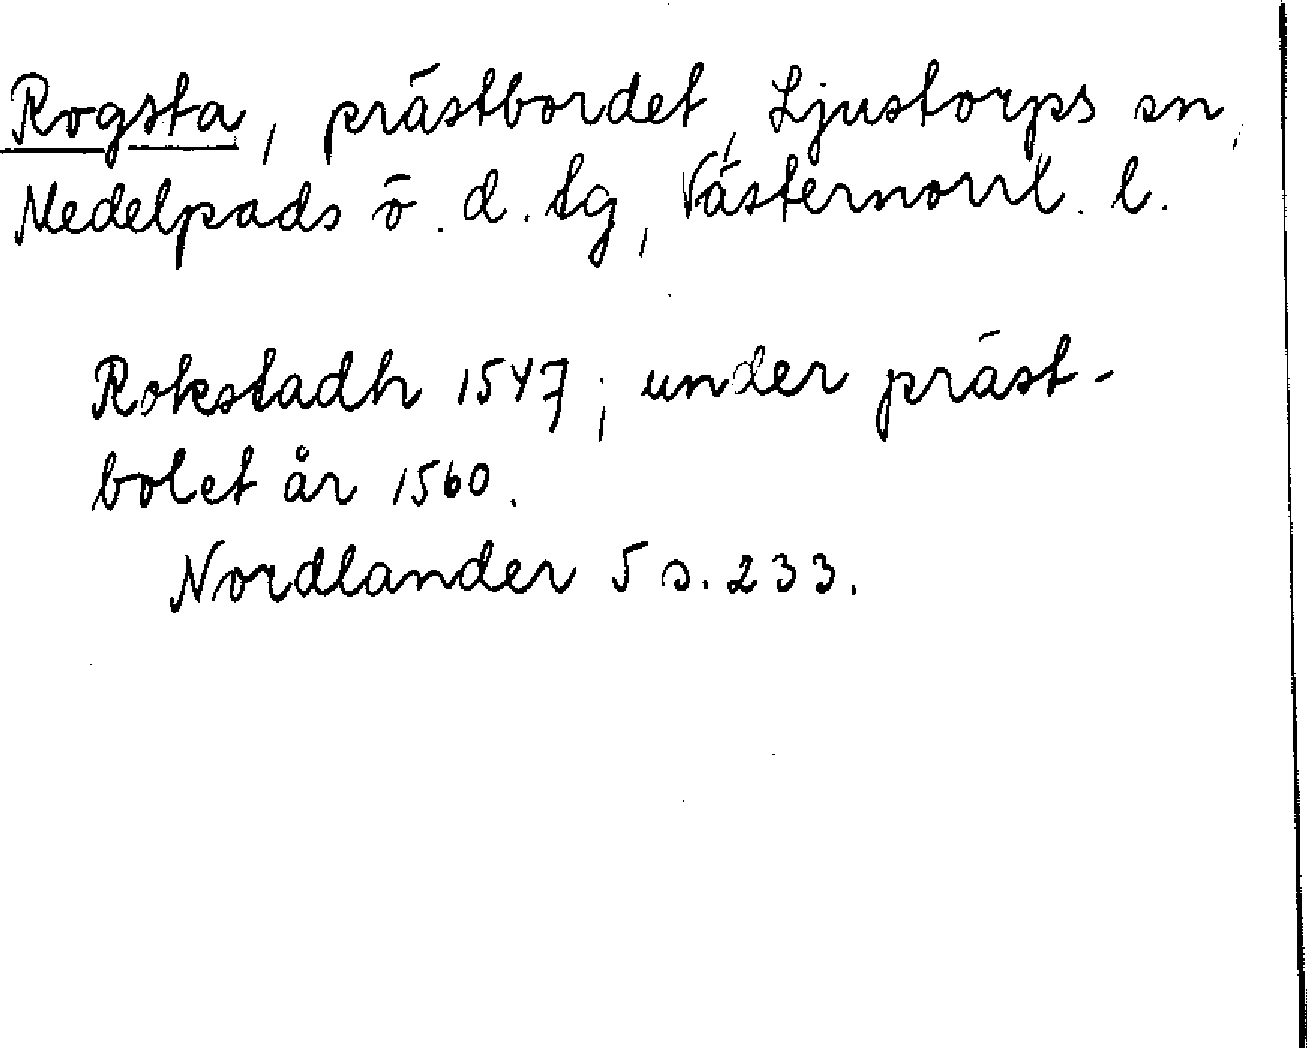 Rogsta, prästbordet, Ljustorps sn,
Medelpads ö. d. tg, Västernorrl. l.
Rokstadh 1547; under präst-
bolet år 1560.
Nordlander 5 s. 233.